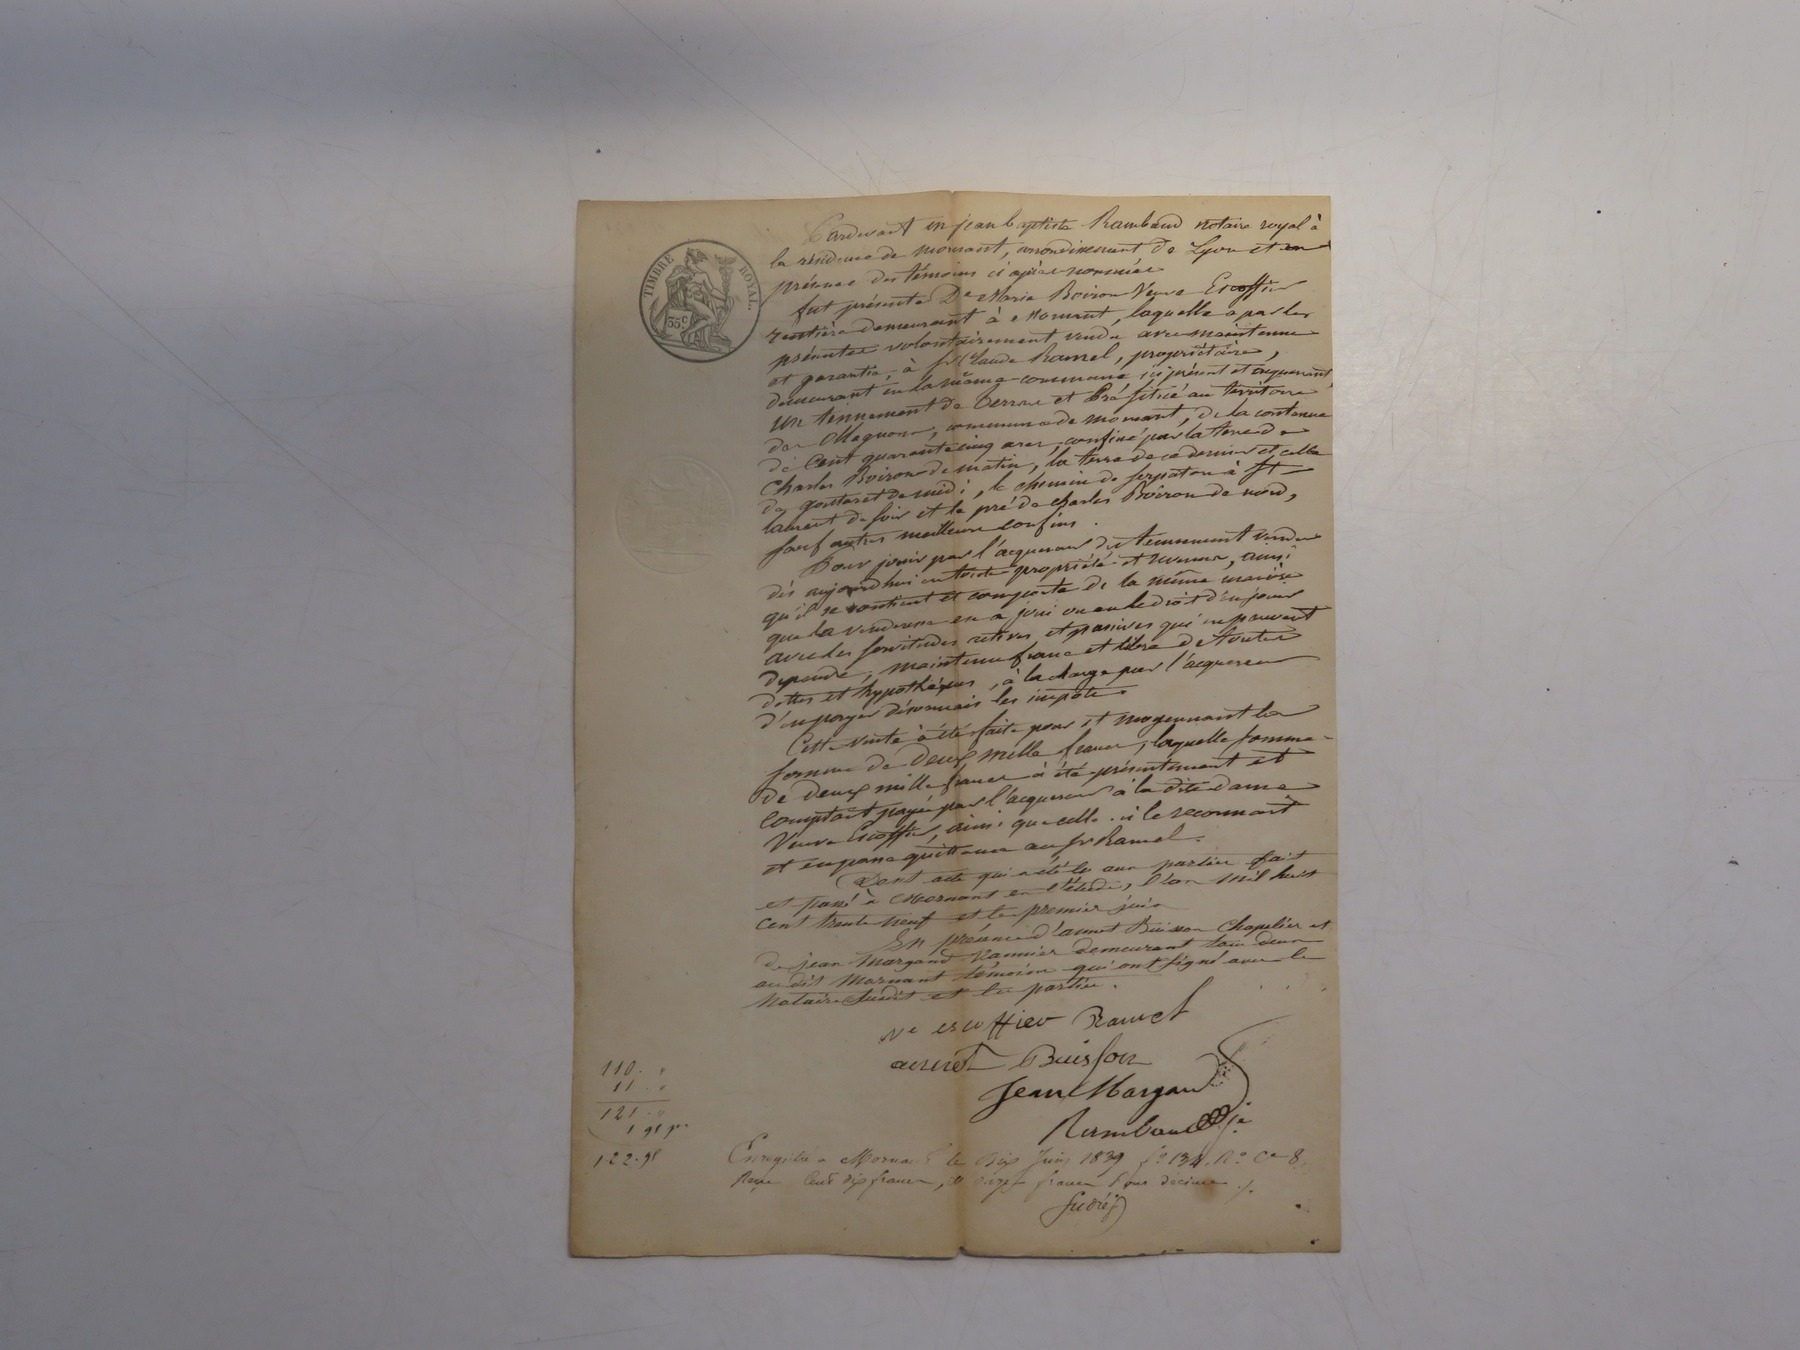 TIMBRE ROYAL
35 c
Pardevant me jean baptiste Rambaud notaire royal à
la résidence de mornant, arrondissement de Lyon et en
présence des témoins ci après nommés
fut présente De Marie Boiron Veuve Escoffier
rentière demeurant à Mornant, laquelle a par les
présentes volontairement vendu avec maintenue
et garantie, à sr Claude Ramel, propriétaire,
demeurant en la même commune ici présent et acquerant
un tennement de Terre et Pré situé au territoire
de, commune de mornant, de la contenue
de Cent quarante cinq ares, confiné par la terre de
Charles Boiron de matin, la terre de ce dernier et celle
de de midi, le chemin de à St
laurent de soir et le pré de charles Boiron de nord,
sauf autres meilleurs confins.
Pour jouir par l'acquereur du tennement vendu
dès aujourd'hui en toute propriété et revenus, ainsi
qu'il se contient et comporte de la même manière
que la venderesse en a joui ou eu le droit d'en jouir
avec les servitudes actives et passives qui en peuvent
dependre, maintenu franc et libre de toutes
dettes et hypothèques, à la charge par l'acquereur
d'en payer désormais les impôts.
Cette vente à été faite pour et moyennant la
somme de Deux mille francs, laquelle somme
de deux mille francs à été présentement et
comptant payée par l'acquereur à la dite dame
Veuve Escoffier, ainsi que celle-ci le reconnait
et en passe quittance au sr Ramel.
Dont acte qui a été lu aux parties fait
et passé à Mornant en l'étude, l'an mil huit
cent trente neuf et le premier juin
En présence d'annet Buisson Chapelier et
de jean Margand Vannier demeurant tous deux
au dit Mornant témoins qui ont signé avec le
Notaire susdit et les parties.
ve escoffier Ramel
annet Buisson
Jean Margand
Rambaud
110 "
11 "
121 "
1 95
122.95
Enregistré à Mornant le Dix Juin 1839 fo 134 Ro Ce 8.
Reçu Cent dix francs, et onze francs pour décime